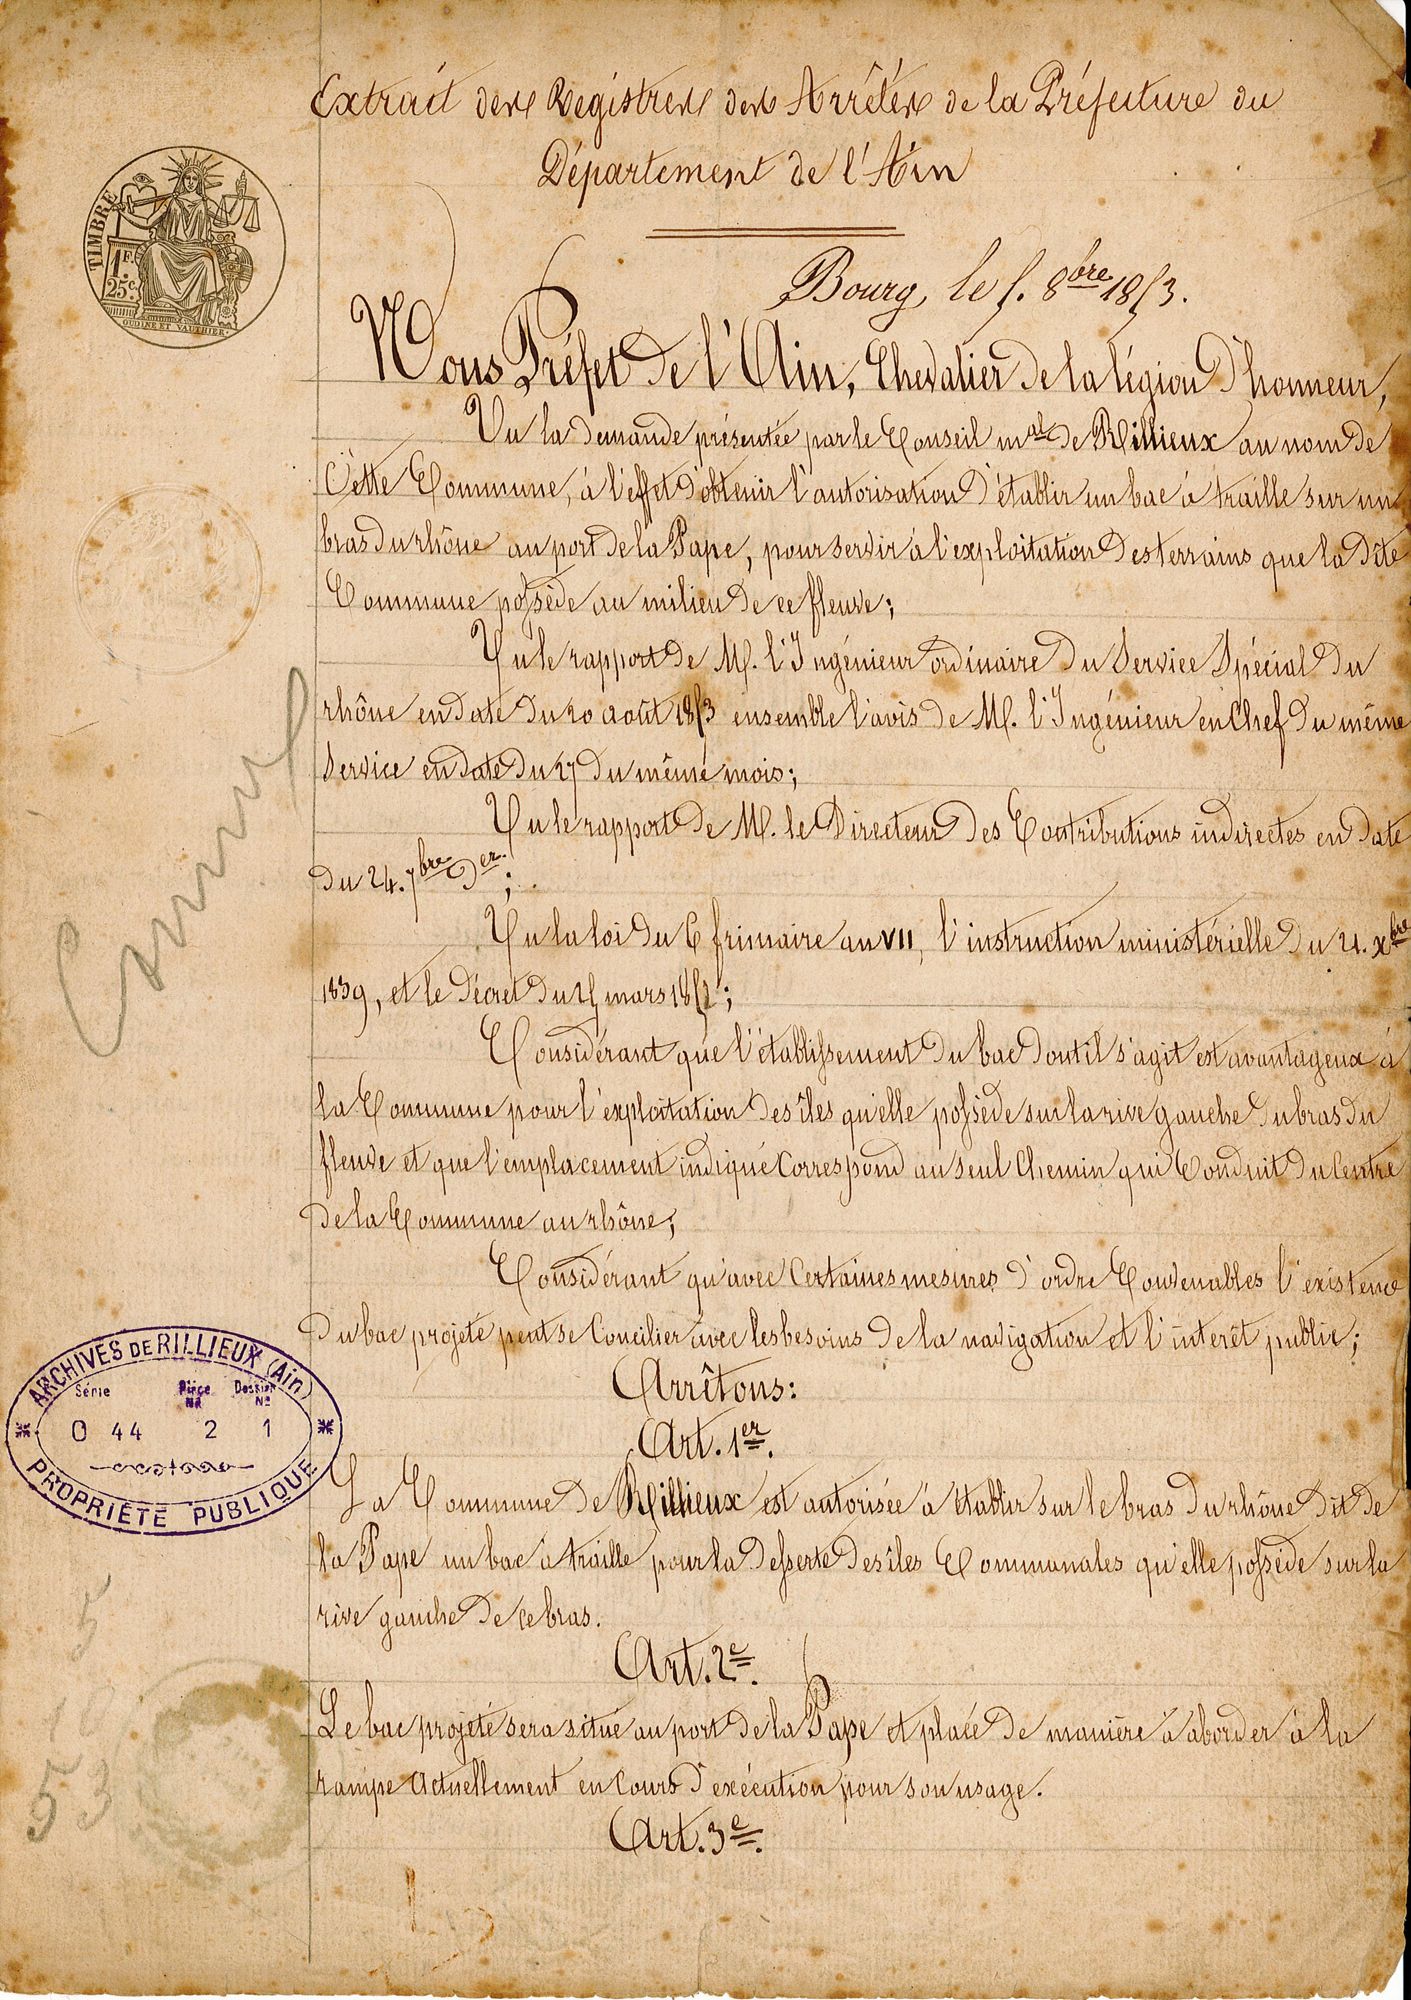 Extrait des Registres des Arrêtés de la Préfecture du
Département de l'Ain
TIMBRE
1 F.
25 c.
OUDINE ET VAUTHIER.
Bourg, le 5. 8bre 1853.
Nous Préfet de l'Ain, Chevalier de la légion d'honneur,
Vu la demande présentée par le Conseil mal de Rillieux au nom de
Cette Commune, à l'effet d'obtenir l'autorisation d'établir un bac à traille sur un
bras du rhône au port de la Pape, pour servir à l'exploitation des terrains que la dite
Commune possède au milieu de ce fleuve;
Vu le rapport de M. l'Ingénieur ordinaire du Service Spécial du
rhône en date du 20 août 1853 ensemble l'avis de M. l'Ingénieur en Chef du même
Service en date du 27 du même mois;
Vu le rapport de M. le Directeur des Contributions indirectes en date
du 24. 7bre der.;
Vu la loi du 6 frimaire an VII, l'instruction ministérielle du 21. Xbre
1839, et le Décret du 25 mars 1852;
Considérant que l'établissement du bac dont il s'agit est avantageux à
la Commune pour l'exploitation des îles qu'elle possède sur la rive gauche du bras du
fleuve et que l'emplacement indiqué correspond au seul Chemin qui Conduit du Centre
de la Commune au rhône;
Considérant qu'avec Certaines mesures d'ordre Convenables l'existence
du bac projeté peut se Concilier avec les besoins de la navigation et l'interêt public;
Arrêtons:
Art. 1er.
La Commune de Rillieux est autorisée à établir sur le bras du rhône dit de
la Pape un bac à traille pour la desserte des îles Communales qu'elle possède sur la
rive gauche de ce bras.
Art. 2e.
Le bac projeté sera situé au port de la Pape et placé de manière à aborder à la
rampe actuellement en cours d'exécution pour son usage.
Art. 3e.
ARCHIVES DE RILLIEUX (Ain)
Série Pièce No Dossier No
O 44 2 1
PROPRIÉTÉ PUBLIQUE
5
10
53